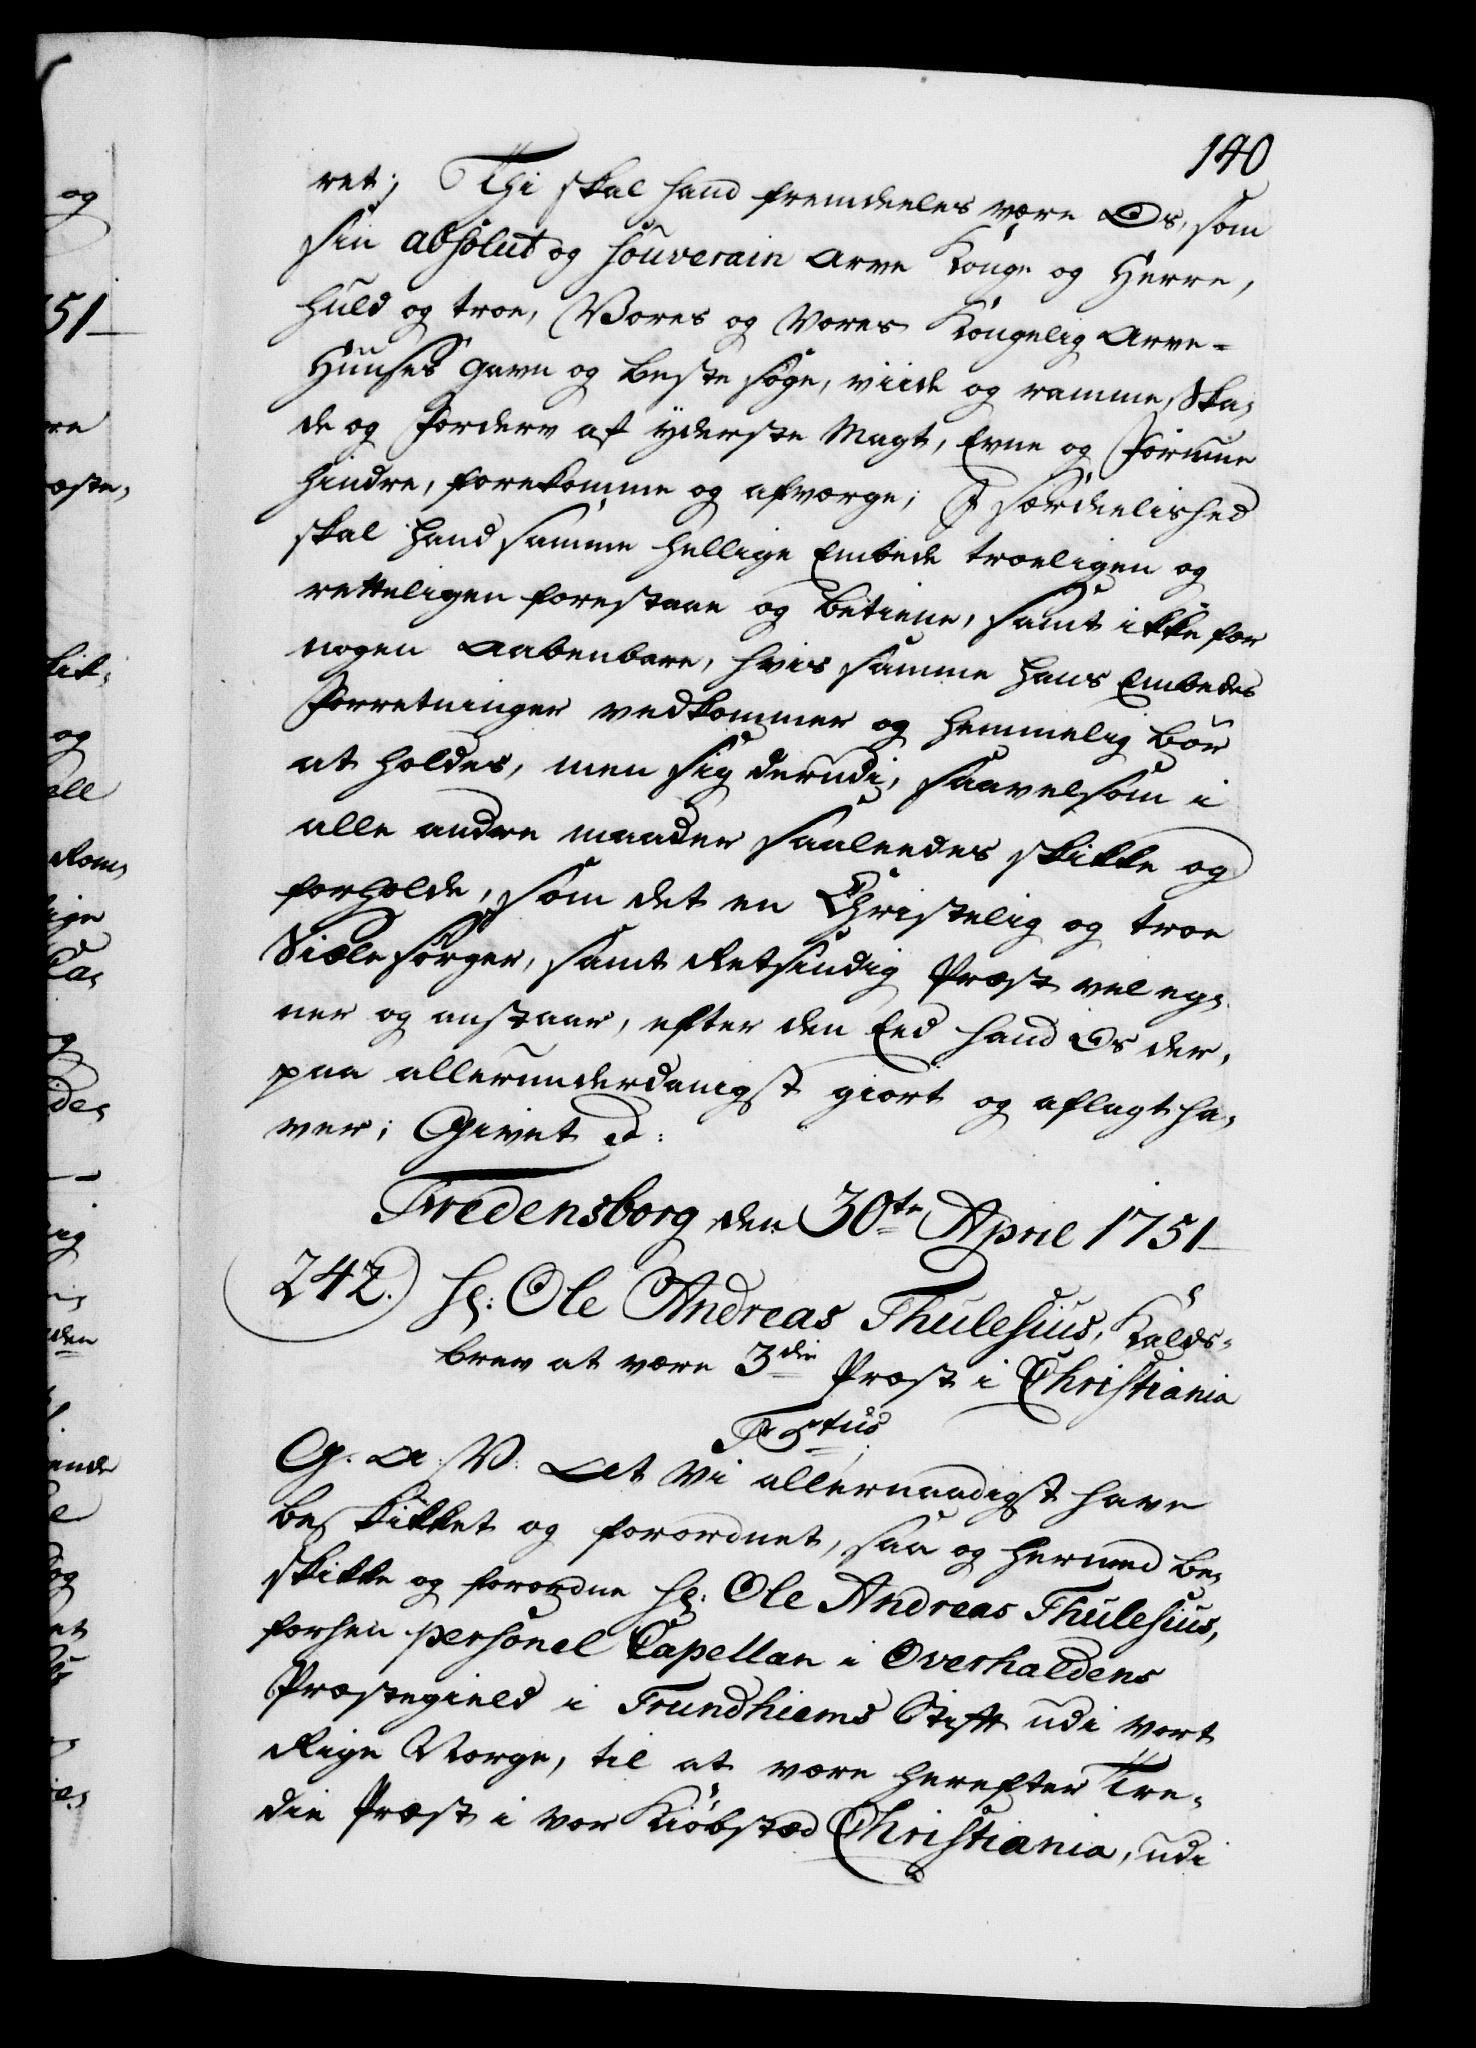 140
ret; Thi skal hand fremdeeles være Os, som
sin absolut og souverain Arve Konge og Herre,
huld og troe, Vores og Vores Kongelig Arve-
Huuses gavn og beste søge, viide og ramme, Ska,
de og Forderv af yderste Magt, Evne og Formue
hindre, forekomme og afværge; I særdeelished
skal hand samme hellige Embede troeligen og
retteligen forestaae og betiene, samt ikke for
nogen aabenbare, hvis samme hans Embedes
Forretninger vedkommer og hemmelig bør
at holdes, men sig derudi, saavelsom i
alle andre maader saaleedes skikke og
forholde, som det en Christelig og troe
Siælesørger, samt Retsindig Præst vel eg,
ner og anstaar, efter den Eed hand Os der,
paa allerunderdanigst giort og aflagt ha,
ver; Givet d:
Fredensborg den 30te April 1751
242. Hr: Ole Andreas Thulesius, Kalds-
brev at være 3die Præst i Christiania
F 5tus
G. A. V. At Vi allernaadigst have
beskikket og forordnet, saa og hermed be,
skikke og forordne Hr: Ole Andreas Thulesius,
forhen personel Capellan i Overhaldens
Præstegield i Trundhiems Stift udi vort
Rige Norge, til at være herefter Tre,
die Præst i vor Kiøbstæd Christiania, udi